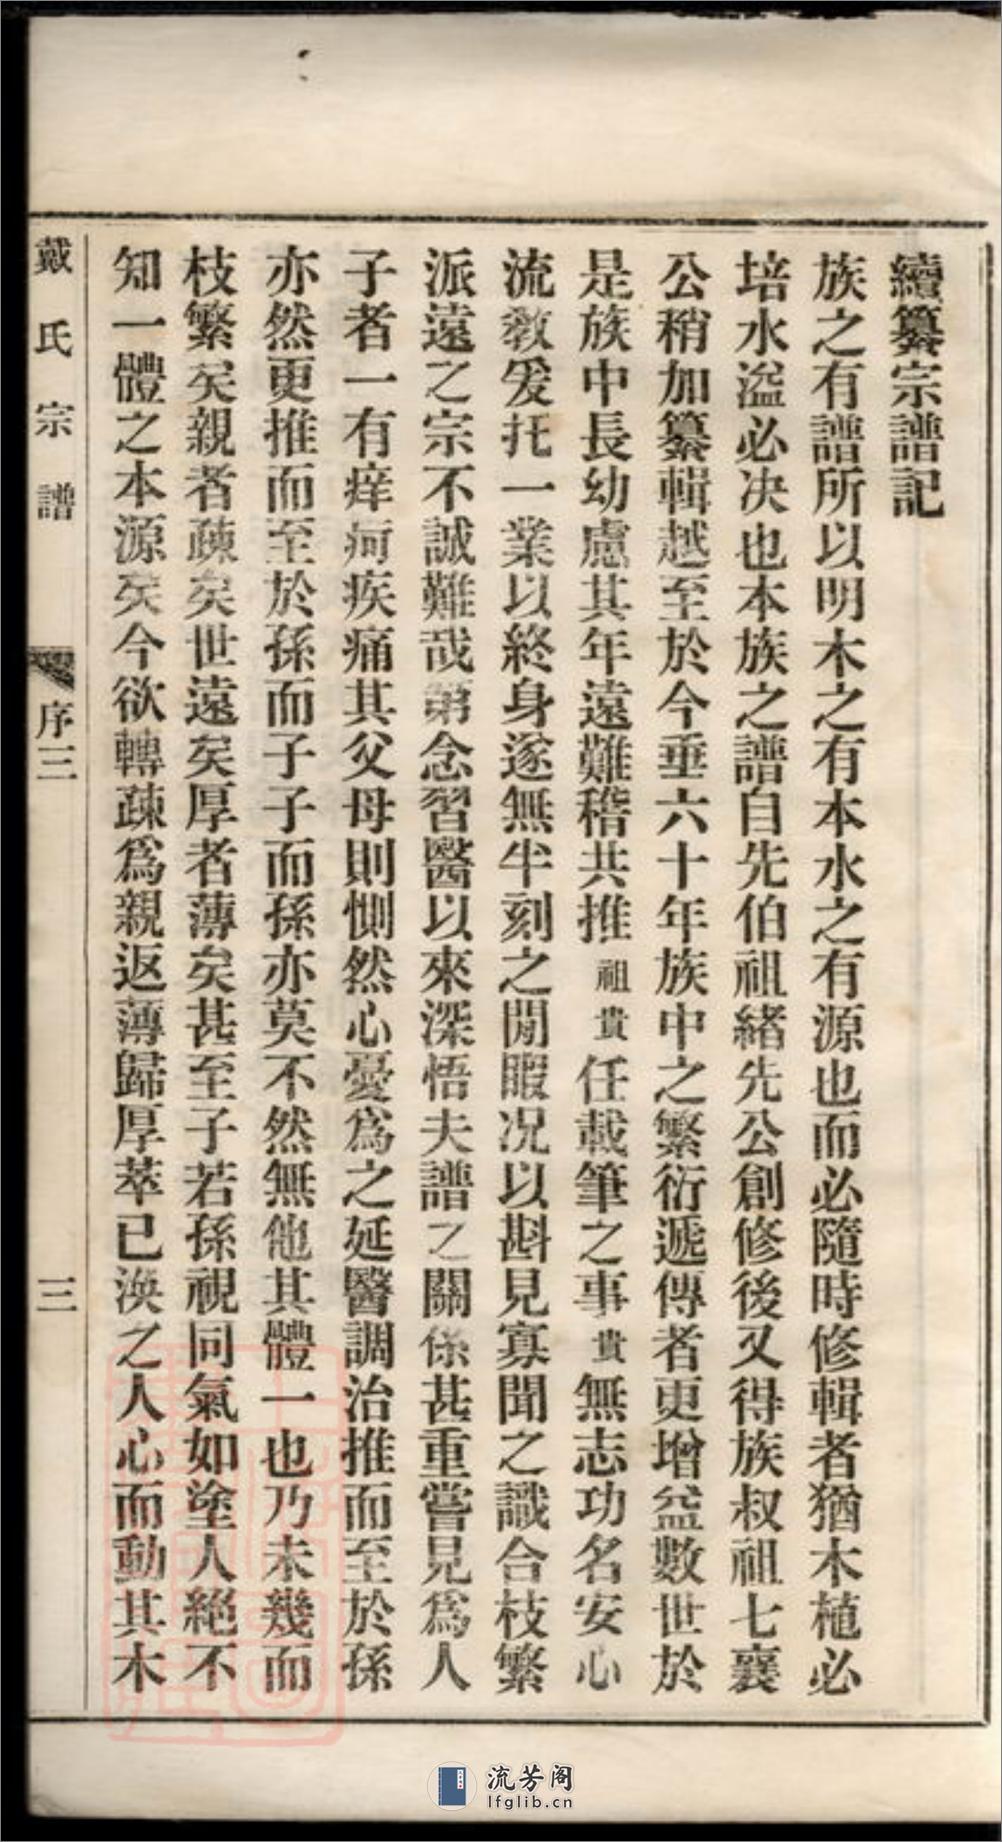 續纂宗譜記
族之有譜所以明木之有本水之有源也而必隨時修輯者猶木植必
培水溢必决也本族之譜自先伯祖緒先公創修後又得族叔祖七襄
公稍加纂輯越至於今垂六十年族中之繁衍遞傳者更增益數世於
是族中長幼慮其年遠難稽共推祖貴任載筆之事貴無志功名安心
流教爰托一業以終身遂無半刻之閒暇况以斟見寡聞之識合枝繁
派遠之宗不誠難哉第念習醫以來深悟夫譜之關係甚重嘗見爲人
子者一有痒疴疾痛其父母則惻然心憂爲之延醫調治推而至於孫
亦然更推而至於孫而子子而孫亦莫不然無他其體一也乃未幾而
枝繁矣親者疎矣世遠矣厚者薄矣甚至子若孫視同氣如塗人絕不
知一體之本源矣今欲轉疎爲親返薄歸厚萃已渙之人心而動其木
戴氏宗譜
序三
三
流芳阁
lfglib.cn